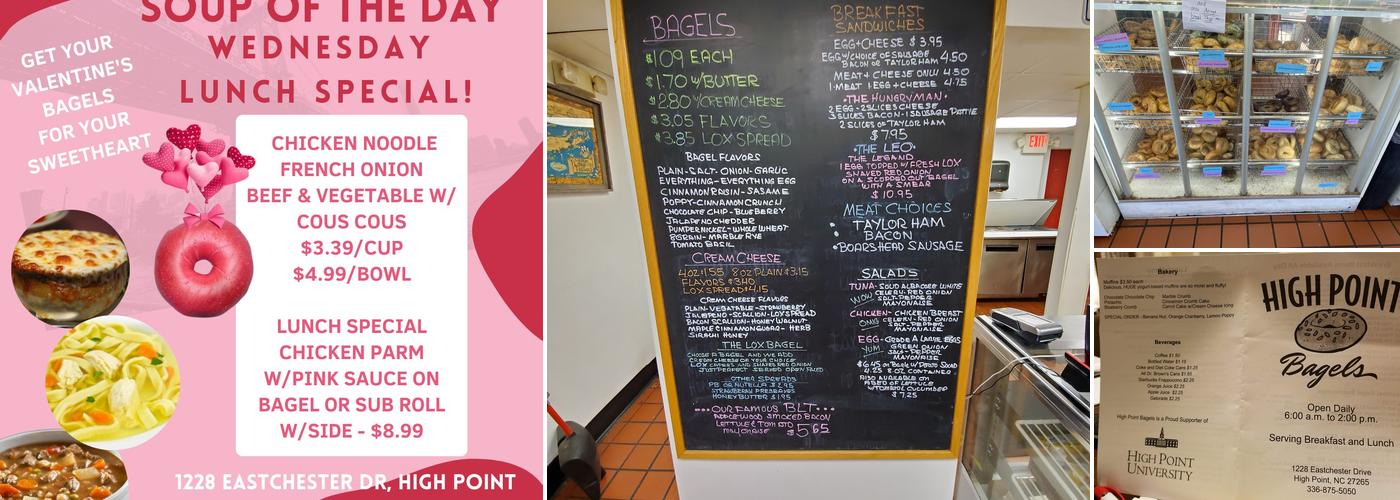 SOUP OF THE DAY
WEDNESDAY
LUNCH SPECIAL!
GET YOUR
VALENTINE'S
BAGELS
FOR YOUR
SWEETHEART
CHICKEN NOODLE
FRENCH ONION
BEEF & VEGETABLE W/
COUS COUS
$3.39/CUP
$4.99/BOWL
LUNCH SPECIAL
CHICKEN PARM
W/PINK SAUCE ON
BAGEL OR SUB ROLL
W/SIDE - $8.99
1228 EASTCHESTER DR, HIGH POINT
BAGELS
$1.09 EACH
$1.70 W/BUTTER
$2.80 W/CREAM CHEESE
$3.05 FLAVORS
$3.85 LOX SPREAD
BAGEL FLAVORS
PLAIN-SALT-ONION-GARLIC
EVERYTHING-EVERYTHING EGG
CINNAMON RAISIN-SASAME
POPPY-CINNAMON CRUNCH
CHOCOLATE CHIP-BLUEBERRY
JALAPENO CHEDDER
PUMPERNICKEL-WHOLE WHEAT
8GRAIN-MARBLE RYE
TOMATO BASIL
CREAM CHEESE
4OZ $1.55 8OZ PLAIN $3.15
FLAVORS $3.40
LOX SPREAD $4.15
CREAM CHEESE FLAVORS
PLAIN-VEGETABLE-STRAWBERRY
JALAPENO-SCALLION-LOX SPREAD
BACON SCALLION-HONEY WALNUT
MAPLE CINNAMON SUGAR-HERB
SIRACHI HONEY
THE LOX BAGEL
CHOOSE A BAGEL AND WE ADD
CREAM CHEESE OF YOUR CHOICE
LOX CAPERS AND SHAVED RED ONION
JUST PERFECT SERVED OPEN FACED
OTHER SPREADS
PB OR NUTELLA $2.95
STRAWBERRY PRESERVES
HONEY BUTTER $1.95
OUR FAMOUS BLT
APPLEWOOD SMOKED BACON
LETTUCE & TOMATO
MAYONAISE $5.65
BREAKFAST
SANDWICHES
EGG+CHEESE $3.95
EGG W/CHOICE OF SAUSAGE
BACON OR TAYLOR HAM 4.50
MEAT+CHEESE ONLY 4.50
1-MEAT 1 EGG+CHEESE 4.75
THE HUNGRYMAN
2 EGG-2 SLICES CHEESE
3 SLICES BACON-1 SAUSAGE PATTIE
2 SLICES OF TAYLOR HAM
$7.95
THE LEO
THE LEGAND
1 EGG TOPPED W/FRESH LOX
SHAVED RED ONION
ON A SCOPPED OUT BAGEL
WITH A SMEAR
$10.95
MEAT CHOICES
TAYLOR HAM
BACON
BOARSHEAD SAUSAGE
SALADS
TUNA-SOLID ALBACORE WHITE
WOW CELERY-RED ONION
SALT-PEPPER
MAYONAISE
CHICKEN-CHICKEN BREAST
OMG CELERY-RED ONION
SALT-PEPPER
MAYONAISE
EGG-GRADE A LARGE EGGS
YUM GREEN ONION
SALT-PEPPER
MAYONAISE
$6.45 ON BAGEL W/POTATO SALAD
4.25 8 OZ CONTAINER
ALSO AVAILABLE ON
A BED OF LETTUCE
W/TOMATO & CUCUMBER
$7.25
EXIT
Bakery
Muffins $3.50 each
Delicious, HUGE yogurt-based muffins are so moist and fluffy!
Chocolate Chocolate Chip
Pistachio
Blueberry Crumb
Marble Crumb
Cinnamon Crumb Cake
Carrot Cake w/Cream Cheese Icing
SPECIAL ORDER - Banana Nut, Orange Cranberry, Lemon Poppy
Beverages
Coffee $1.50
Bottled Water $1.15
Coke and Diet Coke Cans $1.25
All Dr. Brown's Cans $1.65
Starbucks Frappuccino $2.25
Orange Juice $2.25
Apple Juice $2.25
Gatorade $2.25
High Point Bagels is a Proud Supporter of
HIGH POINT
UNIVERSITY
HIGH POINT
Bagels
Open Daily
6:00 a.m. to 2:00 p.m.
Serving Breakfast and Lunch
1228 Eastchester Drive
High Point, NC 27265
336-875-5050